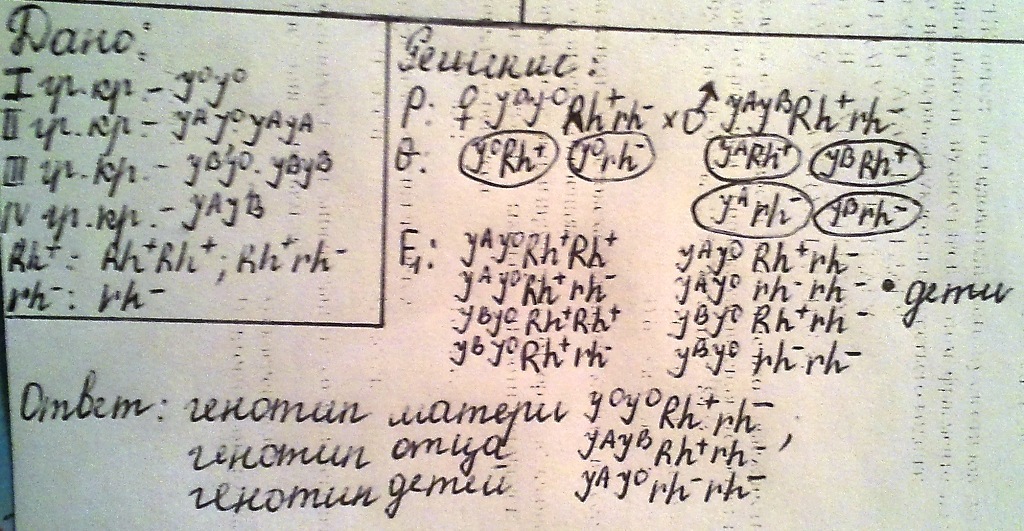 Дано:
I гр.кр. - y⁰y⁰
II гр.кр. - yᴬy⁰ yᴬyᴬ
III гр.кр. - yᴮy⁰. yᴮyᴮ
IV гр.кр. - yᴬyᴮ
Rh⁺: Rh⁺Rh⁺; Rh⁺rh⁻
rh⁻: rh⁻
Решение:
P: ♀ y⁰y⁰ Rh⁺rh⁻ × ♂ yᴬyᴮRh⁺rh⁻
G: y⁰Rh⁺ y⁰rh⁻ yᴬRh⁺ yᴮRh⁺
yᴬrh⁻ yᴮrh⁻
F₁: yᴬy⁰Rh⁺Rh⁺ yᴬy⁰ Rh⁺rh⁻
yᴬy⁰Rh⁺rh⁻ yᴬy⁰ rh⁻rh⁻ • дети
yᴮy⁰ Rh⁺Rh⁺ yᴮy⁰ Rh⁺rh⁻
yᴮy⁰Rh⁺rh⁻ yᴮy⁰ rh⁻rh⁻
Ответ: генотип матери y⁰y⁰Rh⁺rh⁻;
генотип отца yᴬyᴮRh⁺rh⁻;
генотип детей yᴬy⁰rh⁻rh⁻